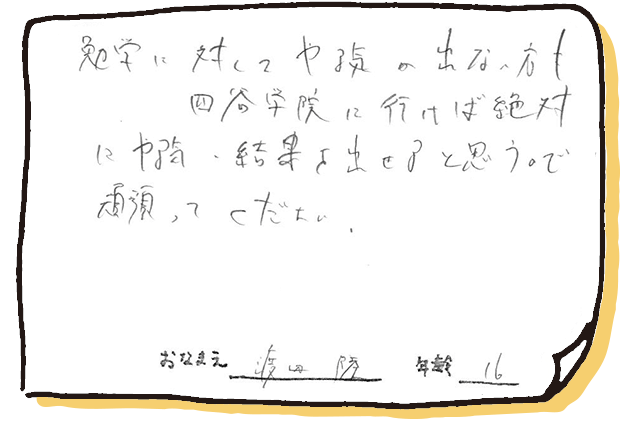 勉学に対してやる気の出ない方も
四谷学院に行けば絶対
にやる気・結果を出せると思うので
頑張ってください。
おなまえ 渡田 陸 年齢 16